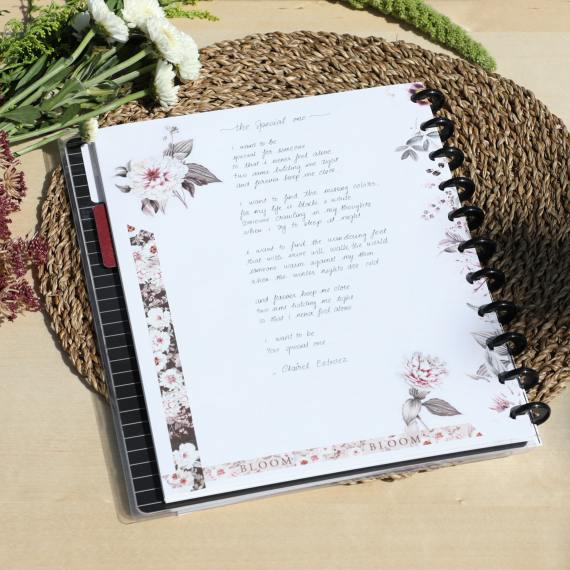 the Special one
i want to be
special for someone
so that i never feel alone
two arms holding me tight
and forever keep me close.
i want to find the missing colors..
for my life is black & white
someone crawling in my thoughts
when i try to sleep at night
i want to find the wandering feet
that with mine will walk the world
someone warm against my skin
when the winter nights are cold
and forever keep me close
two arms holding me tight
so that i never feel alone
i want to be
Your special one..
- Clairel Estevez
BLOOM BLOOM